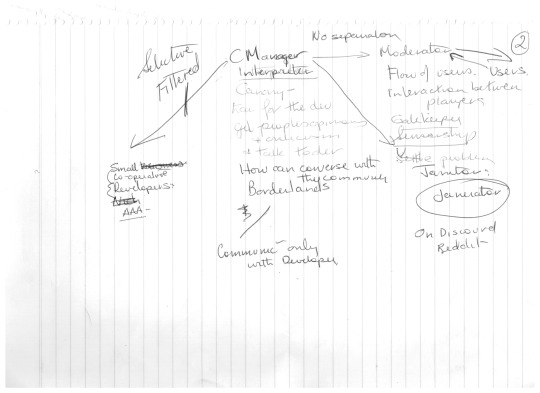 No separation
2
Selective
Filtered
CManager
Interpreter
Canary -
Ear for the dev
Get peoples opinions
+ criticism
+ talk to dev
How can converse with
the community
Borderlands
$
Communic - only
with Developer
Moderator
Users.
Flow of users.
Interaction between
players
Gatekeeper
the problem
Janitor
Janerator
On Discourd
Reddit
Small
Co-operative
Developers
AAA -